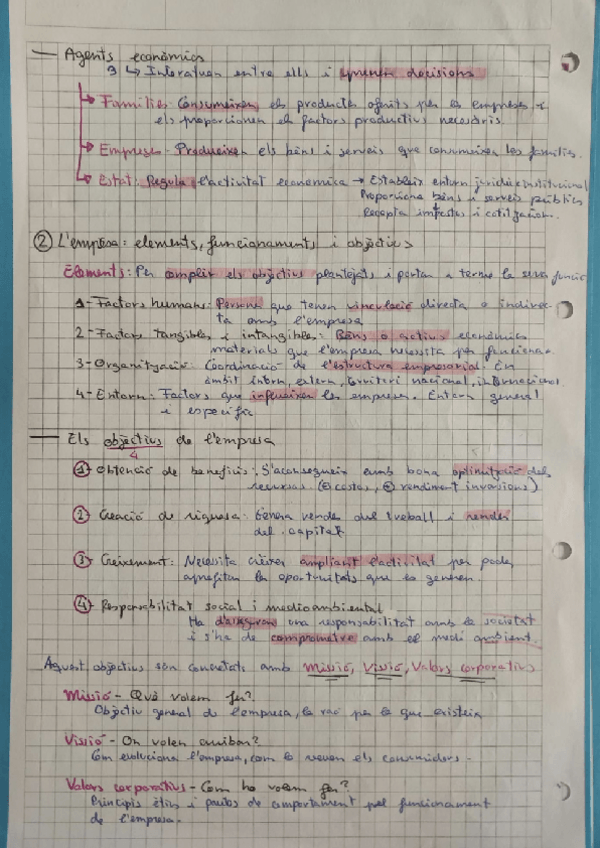 — Agents econòmics
3 ↳ Interatuen entre ells i prenen decisions
Famílies: Consumeixen els productes oferits per les empreses i
els proporcionen els factors productius necessaris.
Empreses - Produeixen els béns i serveis que consumeixen les famílies.
Estat: Regula l'activitat econòmica → Estableix entorn jurídic e institucional
Proporciona béns i serveis públics
Recapta impostos i cotització.
② L'empresa: elements, funcionaments i objectius
Elements: Per complir els objectius plantejats i portar a terme la seva funció
1 - Factors humans: Persones que tenen vinculació directa o indirec-
ta amb l'empresa
2 - Factors tangibles i intangibles: Béns o actius econòmics
materials que l'empresa necessita per funcionar
3 - Organització: Coordinació de l'estructura empresarial. En
àmbit intern, extern, territori nacional, internacional
4 - Entorn: Factors que influeixen les empreses. Entorn general
i específic
— Els objectius de l'empresa
4
① Obtenció de beneficis: S'aconsegueix amb bona optimització dels
recursos. (⊖ costos, ⊕ rendiment inversions)
② Creació de riquesa: Genera rendes del treball i rendes
del capital
③ Creixement: Necessita créixer ampliant l'activitat per poder
aprofitar les oportunitats que es generen
④ Responsabilitat social i medioambiental
Ha d'assegurar una responsabilitat amb la societat
i s'ha de comprometre amb el medi ambient.
Aquest objectius són concretats amb Missió, Visió, Valors corporatius
Missió - Què volem fer?
Objectiu general de l'empresa, la raó per la que existeix
Visió - On volen arribar?
Com evoluciona l'empresa, com la veuen els consumidors.
Valors corporatius - Com ho volem fer?
Principis ètics i pautes de comportament pel funcionament
de l'empresa.